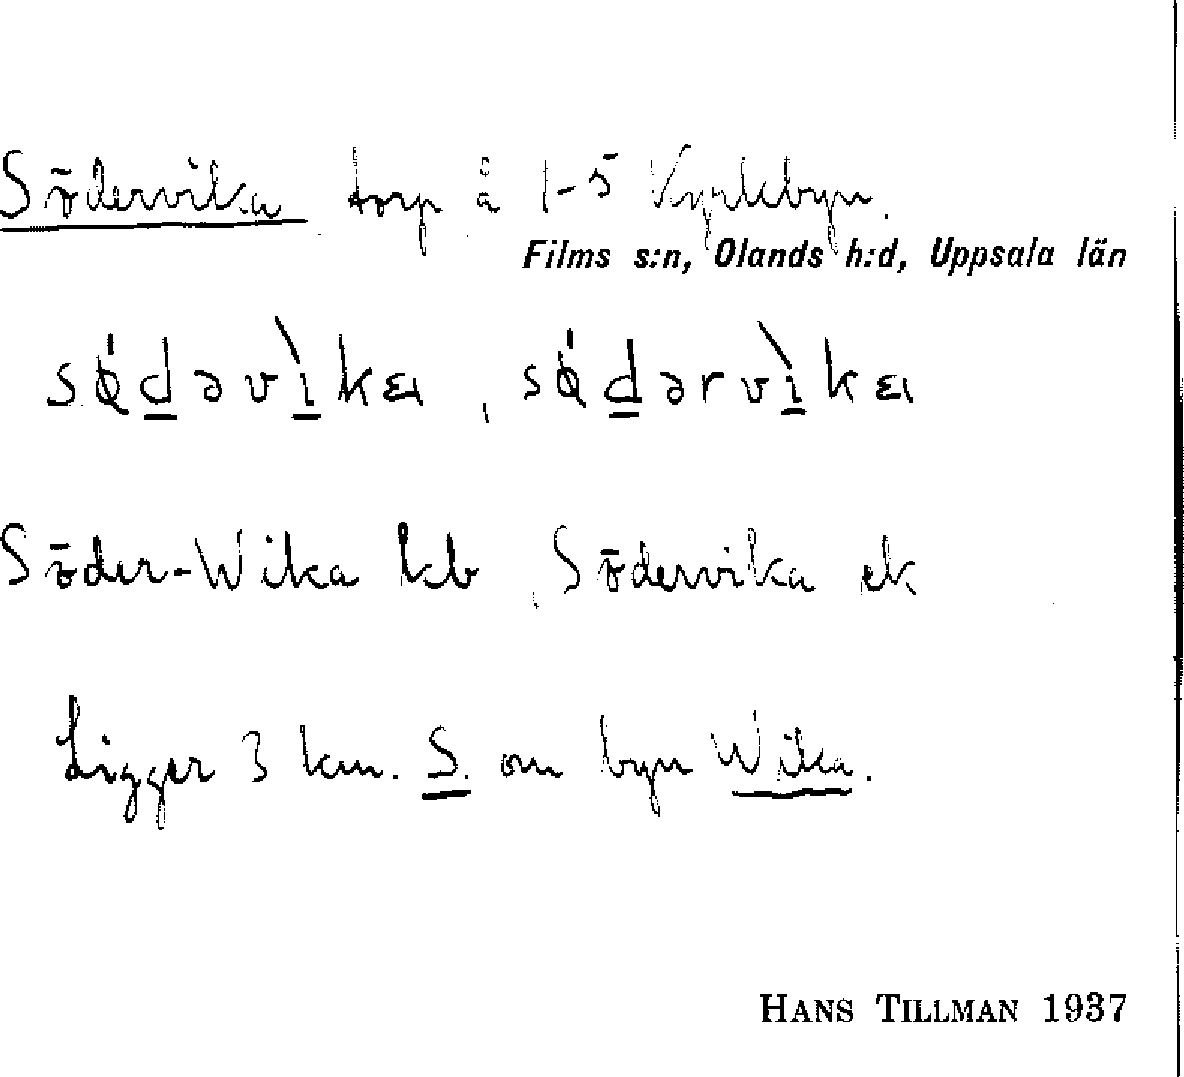 Södervika torp å 1-5 Kyrkbyn.
Films s:n, Olands h:d, Uppsala län
sǿdəvìka, sǿdərvìka
Söder-Wika kb, Södervika ek
Ligger 3 km. S. om byn Wika.
HANS TILLMAN 1937